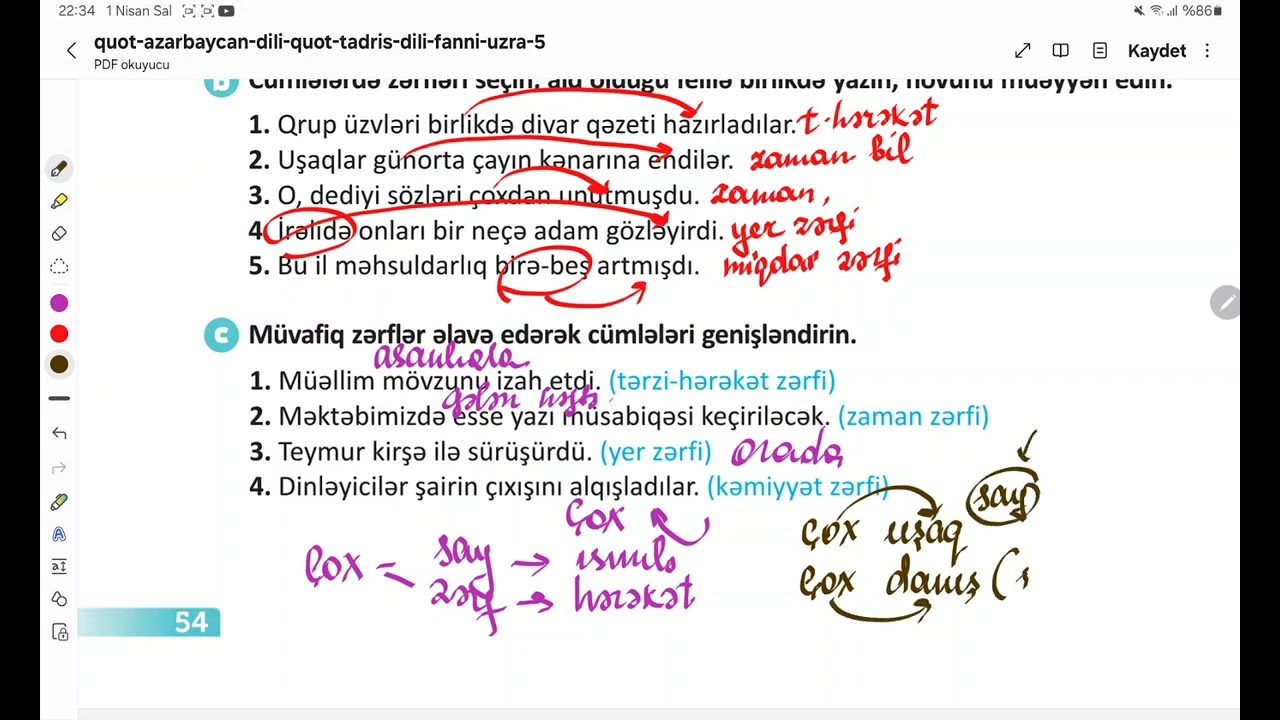 22:34 1 Nisan Sal %86
quot-azarbaycan-dili-quot-tadris-dili-fanni-uzra-5
PDF okuyucu
Kaydet
b Cümlələrdə zərfləri seçin, aid olduğu feillə birlikdə yazın, növünü müəyyən edin.
1. Qrup üzvləri birlikdə divar qəzeti hazırladılar. t.hərəkət
2. Uşaqlar günorta çayın kənarına endilər. zaman bil
3. O, dediyi sözləri çoxdan unutmuşdu. zaman,
4. İrəlidə onları bir neçə adam gözləyirdi. yer zərfi
5. Bu il məhsuldarlıq birə-beş artmışdı. miqdar zərfi
c Müvafiq zərflər əlavə edərək cümlələri genişləndirin.
asanlıqla
1. Müəllim mövzunu izah etdi. (tərzi-hərəkət zərfi)
gələn həftə
2. Məktəbimizdə esse yazı müsabiqəsi keçiriləcək. (zaman zərfi)
3. Teymur kirşə ilə sürüşürdü. (yer zərfi) orada
4. Dinləyicilər şairin çıxışını alqışladılar. (kəmiyyət zərfi)
say
çox
çox uşaq
çox = say → isimlə
zərf → hərəkət
çox danış (
54